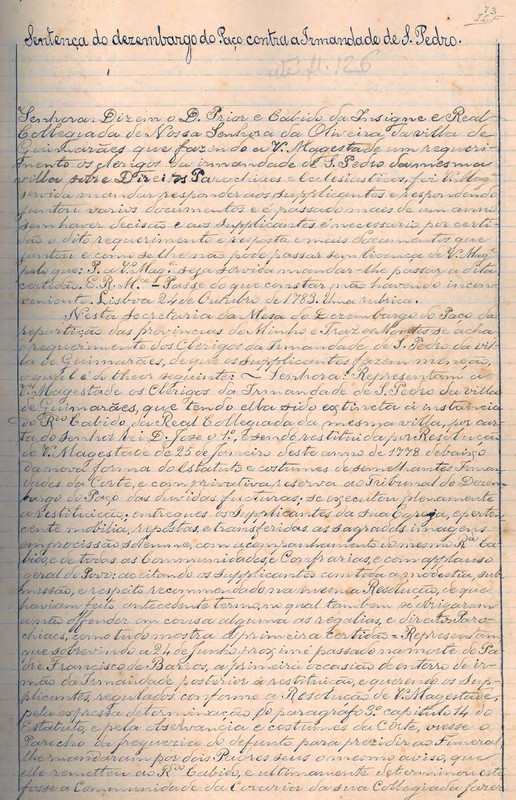 73
Sentença do dezembargo do Paço contra a Irmandade de S. Pedro.
até fl. 126
Senhora: Dizem o D. Prior e Cabido da Insigne e Real
Collegiada de Nossa Senhora da Oliveira da villa de
Guimarães que fazendo a V.ª Magestade um requeri-
mento os clerigos da irmandade de S. Pedro da mesma
villa sobre Direitos Parochiaes e Ecclesiasticos, foi V.ª Mag.e
servida mandar responder aos supplicantes e respondendo
juntou varios documentos e é passado mais de um anno
sem haver decisão e aos supplicantes é necessario por certi-
dão o dito requerimento e resposta e mais documentos que
juntou e como se lhe não póde passar sem licença de V.ª Mag.e
pelo que: P. a V.ª Mag.e seja servida mandar-lhe passar a dita
certidão. E. R. M.ce = Passe do que constar não havendo incon-
veniente. Lisboa 24 de Outubro de 1783. Uma rubrica.
Nesta Secretaria da Meza do Dezembargo do Paço da
repartição das provincias do Minho e Traz os Montes se acha
o requerimento dos Clerigos da Irmandade de S. Pedro da vil-
la de Guimarães, de que os supplicantes fazem menção,
o qual é do theor seguinte: — Senhora: Representam a
V.ª Magestade os Clerigos da Irmandade de S. Pedro da villa
de Guimarães, que tendo ella sido extincta á instancia
do R.do Cabido, da Real Collegiada da mesma villa, por car-
ta do senhor rei D. José o 1.º, e sendo restituida por Resolução
de V.ª Magestade de 25 de janeiro deste anno de 1778 debaixo
da nova forma do Estatuto e costumes de semelhantes Irman-
dades da Corte, e com privativa reserva ao Tribunal do Dezem-
bargo do Paço das duvidas futuras; se executou plenamente
a restituição, entregues os supplicantes da sua Egreja, e perten-
cente mobilia, repostas e transferidas as sagradas imagens
em procissão solemne, com acompanhamento do mesmo R.do Ca-
bido, e de todas as Communidades, e Confrarias, e com applauso
geral do Povo: aceitando os supplicantes com toda a modestia, sub-
missão, e respeito recommendado na mesma Resolução, de que
haviam feito antecedente termo, no qual tambem se obrigaram
a não offender em cousa alguma as regalias, e direitos Paro-
chiaes, como tudo mostra a primeira certidão = Representam,
que sobrevindo a 24 de junho proximo passado na morte do Pa-
dre Francisco de Barros, a primeira occasião de enterro de ir-
mão da Irmandade posterior á restituição, e querendo os sup-
plicantes, regulados conforme a Resolução de V.ª Magestade,
pela expressa determinação do paragrafo 3.º capitulo 14 do
Estatuto, e pela observancia e costumes da Corte, viesse o
Parocho da freguezia do defunto para prezidir ao Funeral
lhe mandaram por dois Padres seus o mesmo aviso, que
elle remetteu ao R.do Cabido, e ultimamente determinou este
fosse a Communidade da Coraria da sua Collegiada fazer